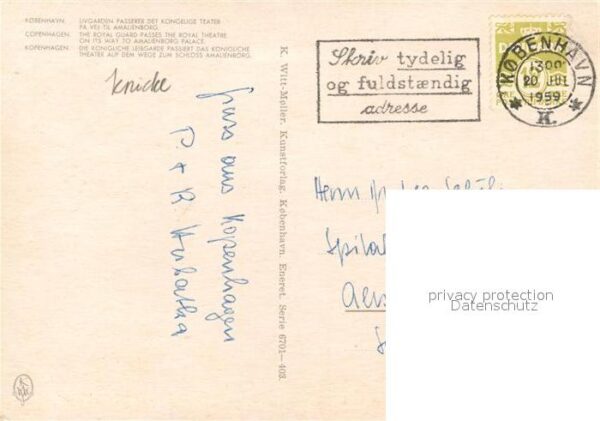 KØBENHAVN. LIVGARDEN PASSERER DET KONGELIGE TEATER
PÅ VEJ TIL AMALIENBORG.
COPENHAGEN. THE ROYAL GUARD PASSES THE ROYAL THEATRE
ON ITS WAY TO AMALIENBORG PALACE.
KOPENHAGEN. DIE KÖNIGLICHE LEIBGARDE PASSIERT DAS KÖNIGLICHE
THEATER AUF DEM WEGE ZUM SCHLOSS AMALIENBORG.
knicke
Skriv tydelig
og fuldstændig
adresse
KØBENHAVN
20 JUL
1959
K.
K. Witt-Møller. Kunstforlag. København. Eneret. Serie 6701-403.
aus Kopenhagen
P + R
Herrn
privacy protection
Datenschutz